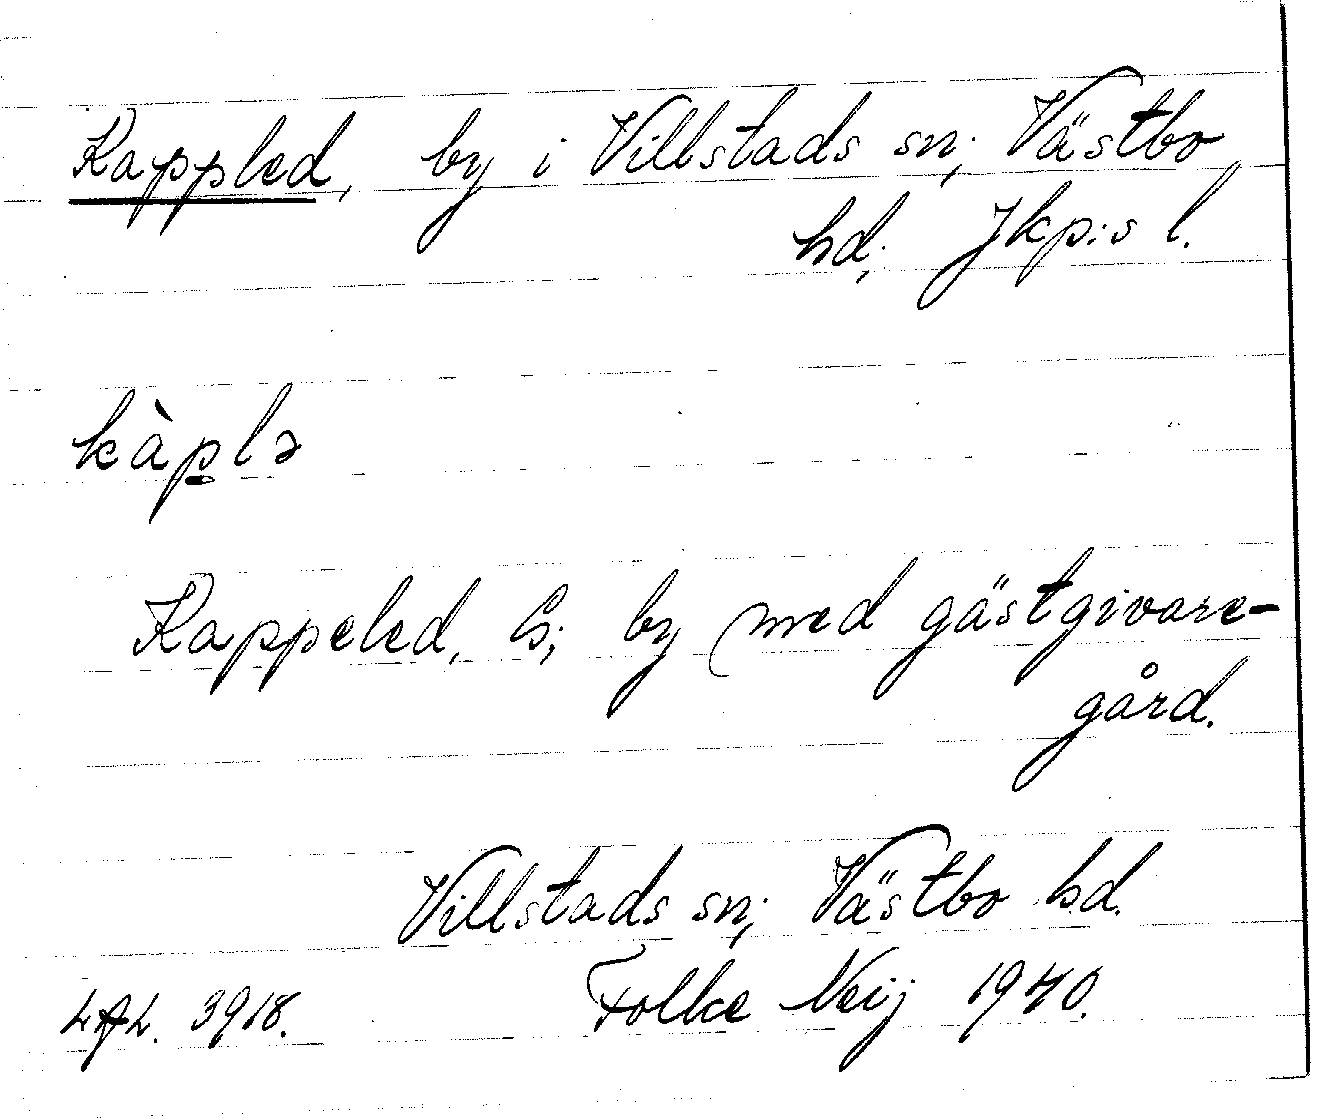 Kappled, by i Villstads sn; Västbo
hd; Jkp:s l.
kàplə
Kappeled, S; by med gästgivare-
gård.
Villstads sn; Västbo hd.
Folke Neij 1940.
LAL. 3918.